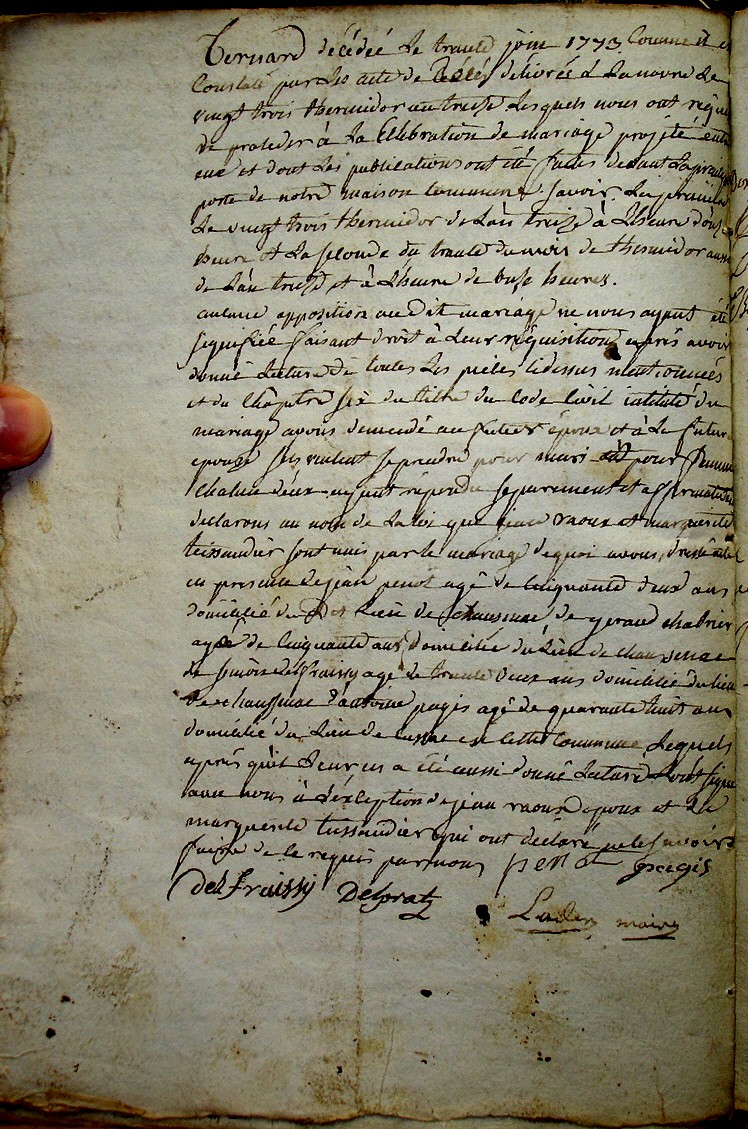 Bernard décédé le trante join 1773 Comme il e
Constaté par les acte de décés délivrée à la novre le
vingt trois thermidor an treize lesquels nous ont requi
de proceder à la Celebration de mariage projeté entr
eux et dont les publications ont été faites devant la principal
porte de notre maison Commune Savoir la premiere
le vingt trois thermidor de l'an treize à l'heure d'onze
heure et la seconde du trante du mois de thermidor aussi
de l'an treize et à l'heure de onze heures.
aucune opposition au dit mariage ne nous ayant été
signifiée faisant droit à leur requisition après avoir
donné lecture de toutes les pieces cidessus mentionnées
et du Chapitre six du titre du Code Civil intitulé du
mariage avons demandé au futur époux et à la future
epouze s'ils veulent se prendre pour mari et pour femme
Chacun d'eux ayant répondu séparement et affirmativ
declarons au nom de la loi que jean raoux et marguerite
teissandier sont unis par le mariage de quoi avons dressé acte
en presence de jean penot agé de Cinquante deux ans
domicilié du lieu de Chaussenac de geraud chabrier
agé de Cinquante ans domicilié du lieu de chaussenac
de delfraissy agé de trante deux ans domicilié du lieu
de chaussenac d'antoine pagis agé de quarante huit ans
domicilié du lieu de en cette Commune lesquels
après qu'il leur en a été aussi donné lecture l'ont signé
avec nous à l'éxception de jean raoux epoux et de
marguerite tessandier qui ont declaré ne le savoir
faire de ce requis par nous penot pagis
delfraissy Delprat
maire